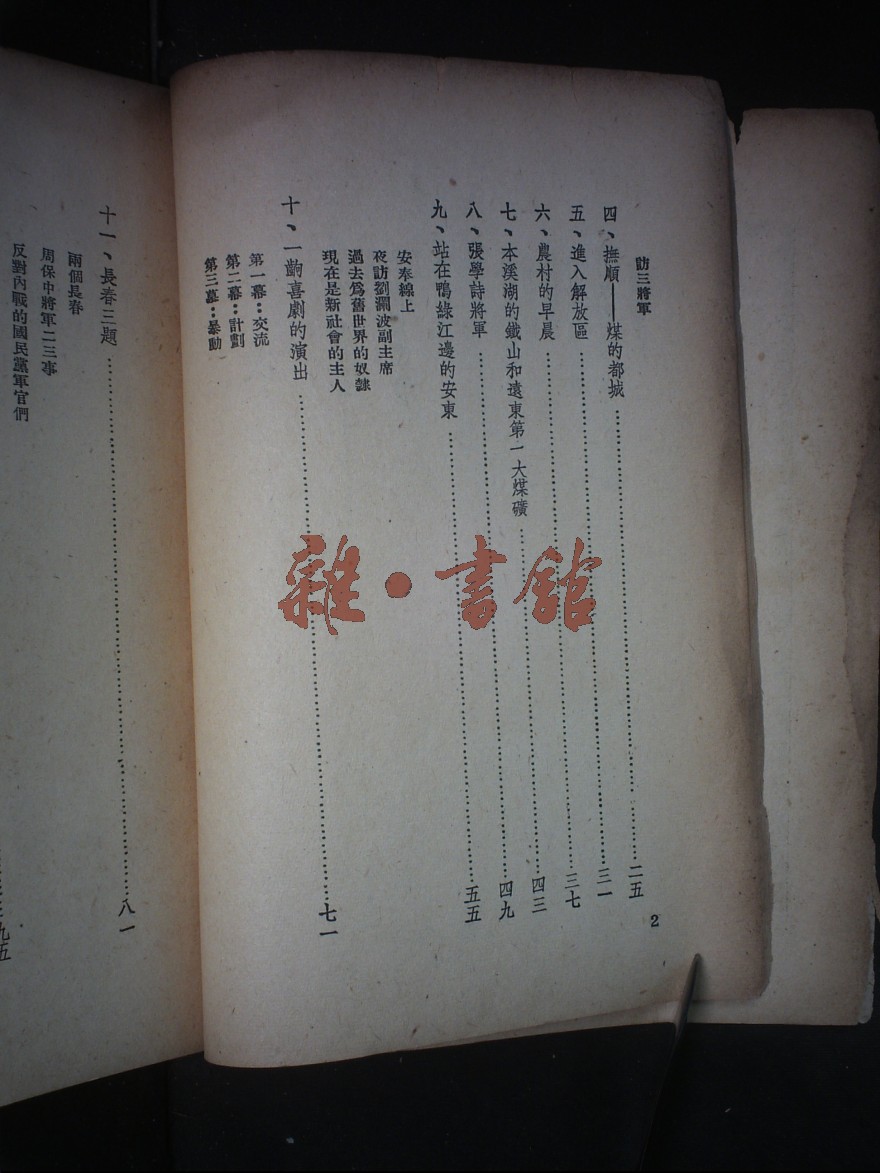 訪三將軍
四、撫順——煤的都城……二五
五、進入解放區……三一
六、農村的早晨……三七
七、本溪湖的鐵山和遠東第一大煤礦……四三
八、張學詩將軍……四九
九、站在鴨綠江邊的安東……五五
安奉線上
夜訪劉瀾波副主席
過去爲舊世界的奴隸
現在是新社會的主人
十、一齣喜劇的演出……七一
第一幕：交流
第二幕：計劃
第三幕：暴動
2
十一、長春三題……八一
兩個長春
周保中將軍二三事
反對內戰的國民黨軍官們
九五
雜·書館